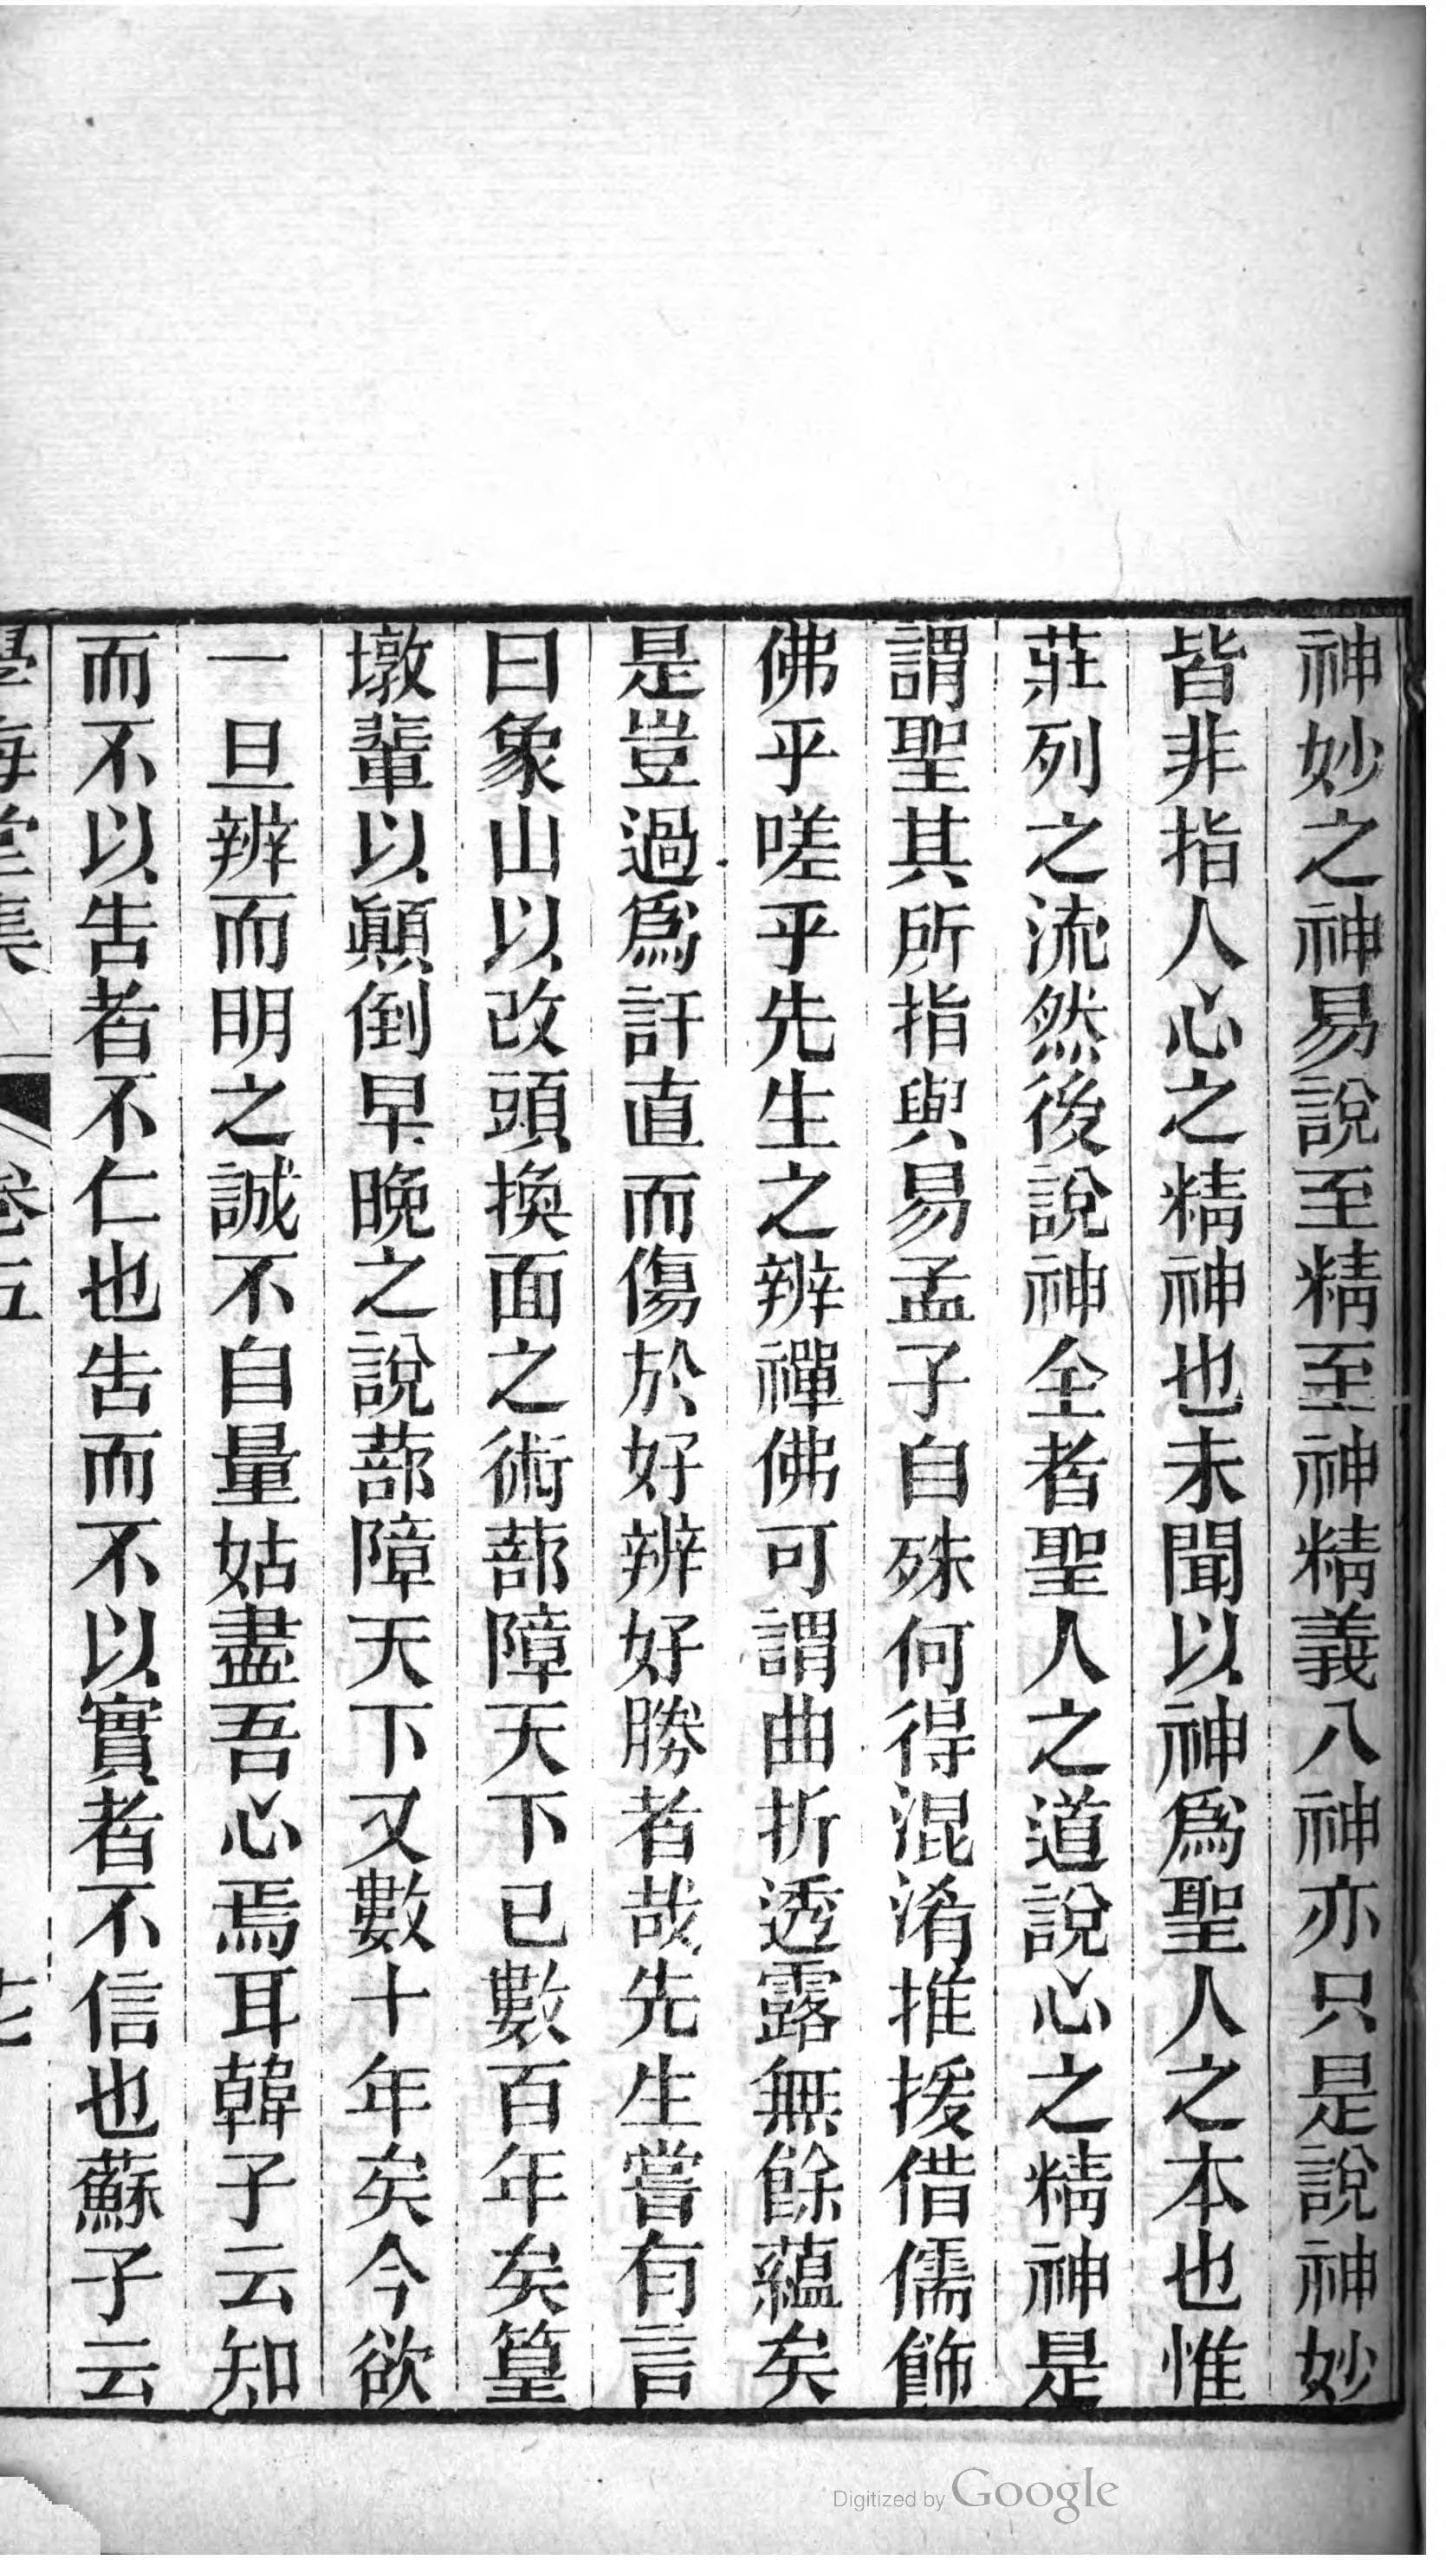 神妙之神易說至精至神精義入神亦只是說神妙
皆非指人心之精神也未聞以神爲聖人之本也惟
莊列之流然後說神全者聖人之道說心之精神是
謂聖其所指與易孟子自殊何得混淆推援借儒飾
佛乎嗟乎先生之辨禪佛可謂曲折透露無餘蘊矣
是豈過爲訐直而傷於好辨好勝者哉先生嘗有言
曰象山以改頭換面之術蔀障天下已數百年矣篁
墩輩以顛倒早晚之說蔀障天下又數十年矣今欲
一旦辨而明之誠不自量姑盡吾心焉耳韓子云知
而不以告者不仁也告而不以實者不信也蘇子云
學海堂集 卷五
Digitized by Google